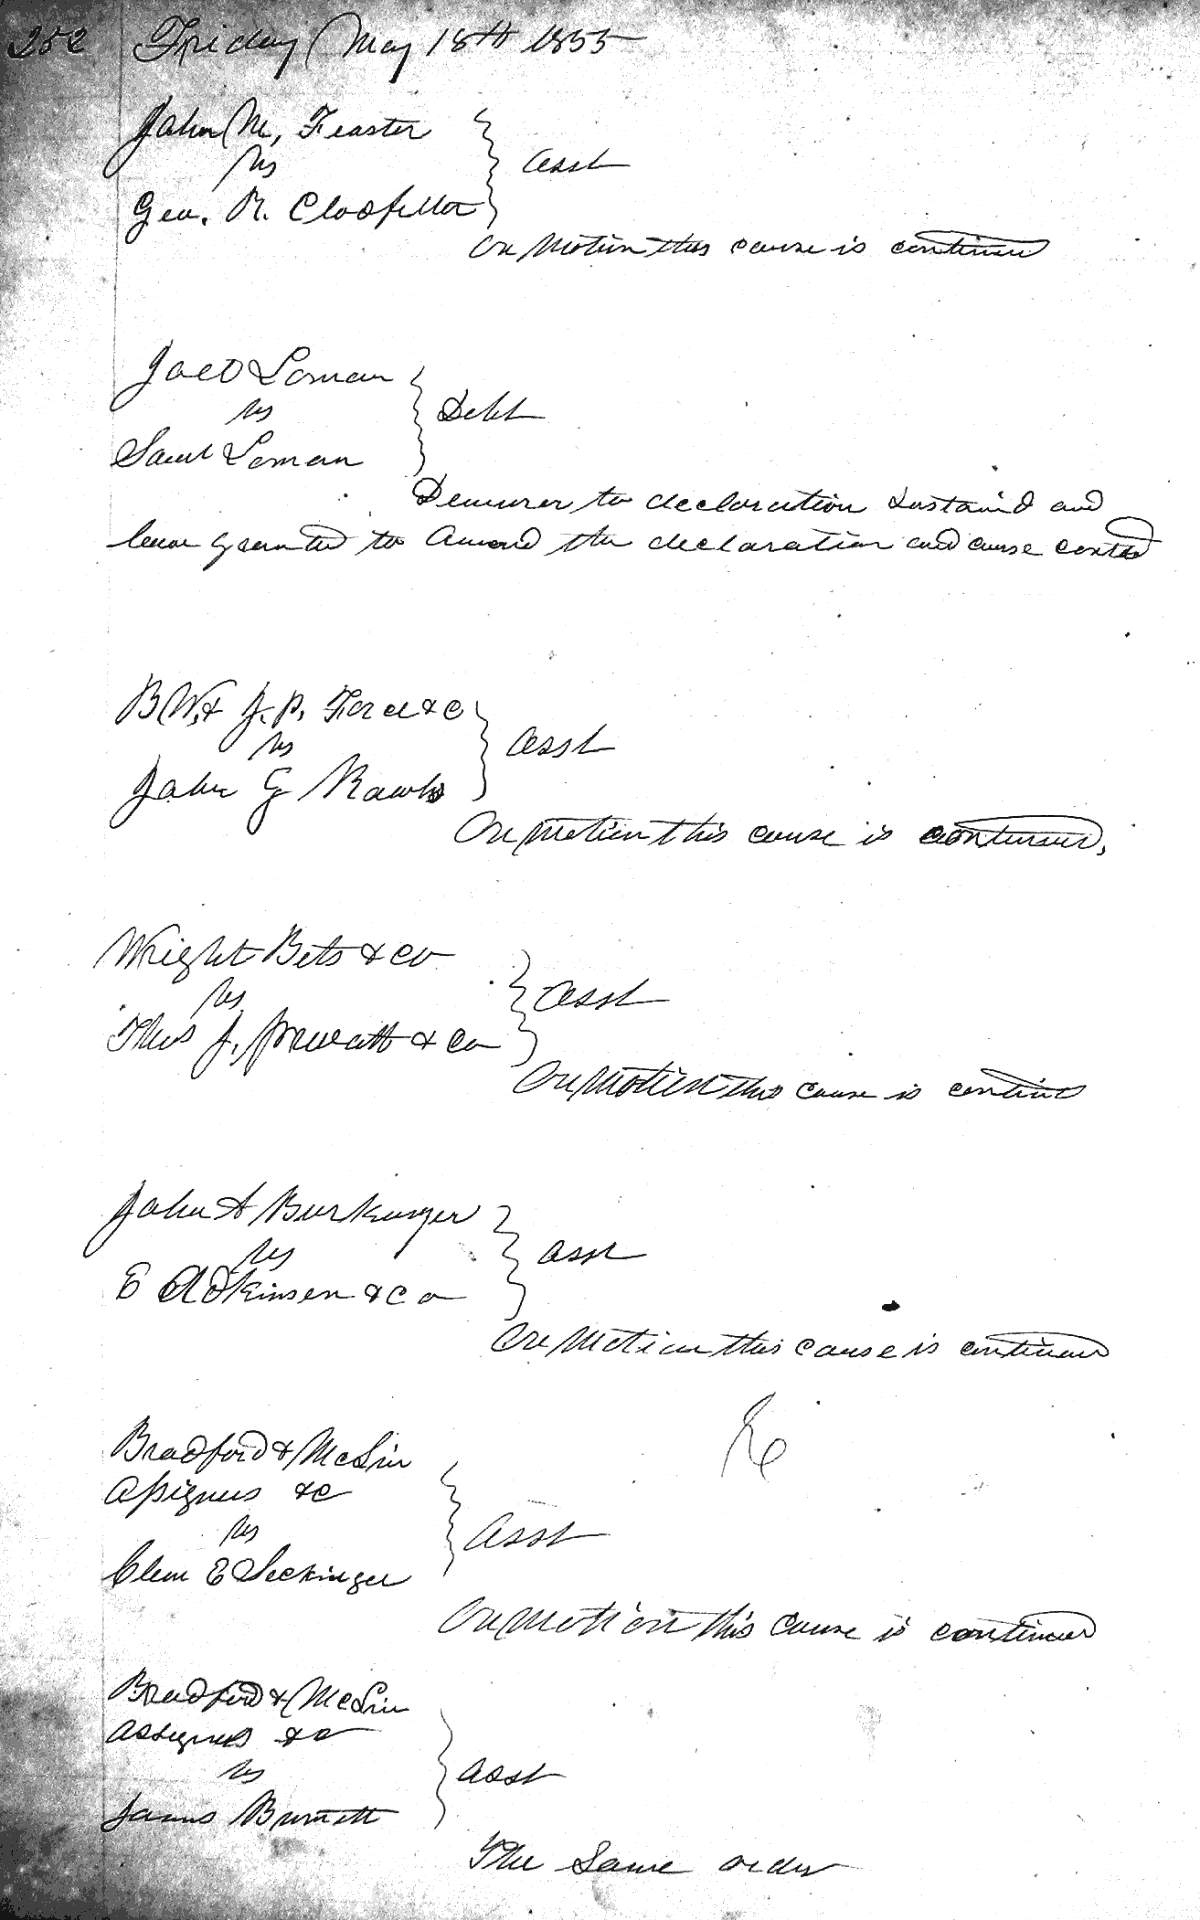 252 Friday May 18th 1855
John M, Feaster
vs
asst
Geo. R. Clodfelter
On Motion this cause is continued
Jacob Loman
vs
Debt
Saml Loman
Demurer to declaration sustaind and
leave granted to Amend the declaration and cause contd
B W, & J. P. Force &c
vs
asst
John G Rawls
On motion this cause is continued,
Wright Bets & Co
vs
asst
Thos J, & Co
On Motion this cause is continud
John A
vs
asst
E Adkinson & Co
On Motion this cause is continued
Bradford & McLin
Assignees &c
vs
asst
Clem E Seckinger
On motion this cause is continued
Bradford & McLin
Assignees &c
vs
asst
James Burnett
The Same order